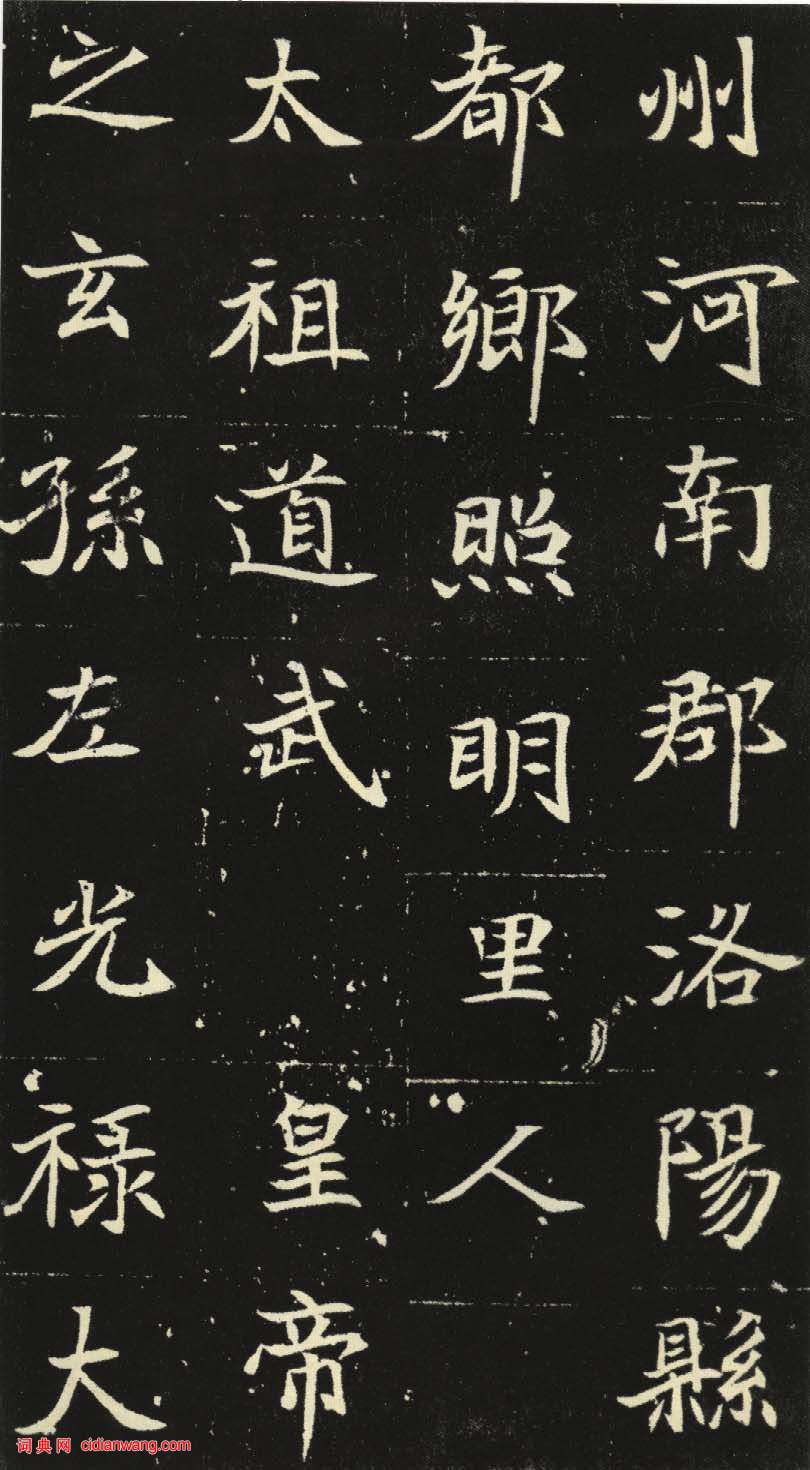 州河南郡洛陽縣
都鄉照明里人
太祖道武皇帝
之玄孫左光祿大
词典网 cidianwang.com